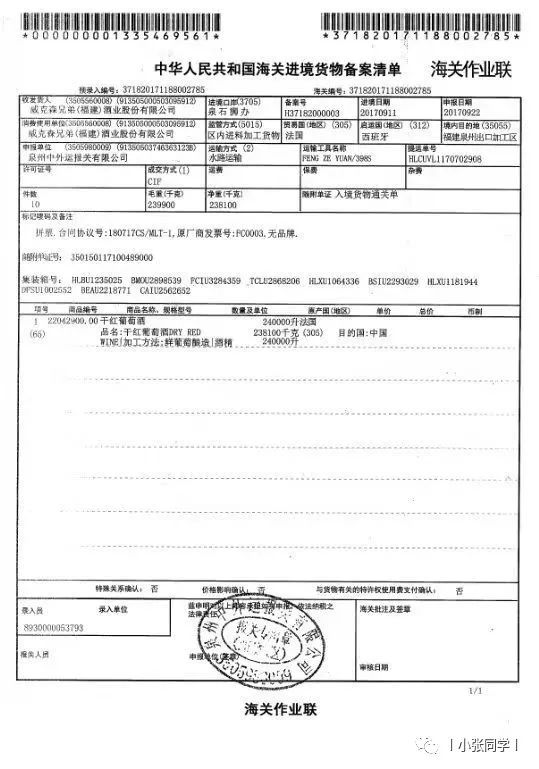 *000000001335469561*
*371820171188002785*
中华人民共和国海关进境货物备案清单
海关作业联
预录入编号: 371820171188002785
海关编号: 371820171188002785
收发货人 (3505560008) (913505000503095912)
威克森兄弟(福建)酒业股份有限公司
进境口岸(3705)
泉石狮办
备案号
H37182000003
进境日期
20170911
申报日期
20170922
消费使用单位(3505560008) (913505000503095912)
威克森兄弟(福建)酒业股份有限公司
监管方式(5015)
区内进料加工货物
贸易国(地区) (305)
法国
启运国(地区) (312)
西班牙
境内目的地 (35055)
福建泉州出口加工区
申报单位 (3505980009)
泉州中外运报关有限公司
运输方式 (2)
水路运输
运输工具名称
FENG ZE YUAN/3985
提运单号
HLCUVL1170702908
许可证号
成交方式(1)
CIF
运费
保费
杂费
件数
10
毛重(千克)
239900
净重(千克)
238100
随附单证 入境货物通关单
标记唛码及备注
拼票.合同协议号:180717CS/MLT-1,原厂商发票号:FC0003.无品牌.
随附单证号: 350150117100489000
集装箱号: HLBU1235025 BMOU2898539 FCIU3284359 TCLU2868206 HLXU1064336 BSIU2293029 HLXU1181944
DFSU1002552 BEAU2218771 CAIU2562652
项号 商品编号 商品名称、规格型号 数量及单位 原产国(地区) 单价 总价 币制
1 22042900.00 干红葡萄酒 240000升法国
(65) 品名:干红葡萄酒DRY RED 238100千克 (305) 目的国:中国
WINE|加工方法:鲜葡萄酿造|酒精 240000升
特殊关系确认: 否 价格影响确认: 否 与货物有关的特许权使用费支付确认: 否
录入员 录入单位
8930000053793
兹申明对以上内容承担如实申报、依法纳税之
法律责任
海关批注及签章
报关人员
申报单位(签章)
审核日期
泉州中外运报关有限公司
报关专用章
1/1
海关作业联
|小张同学|